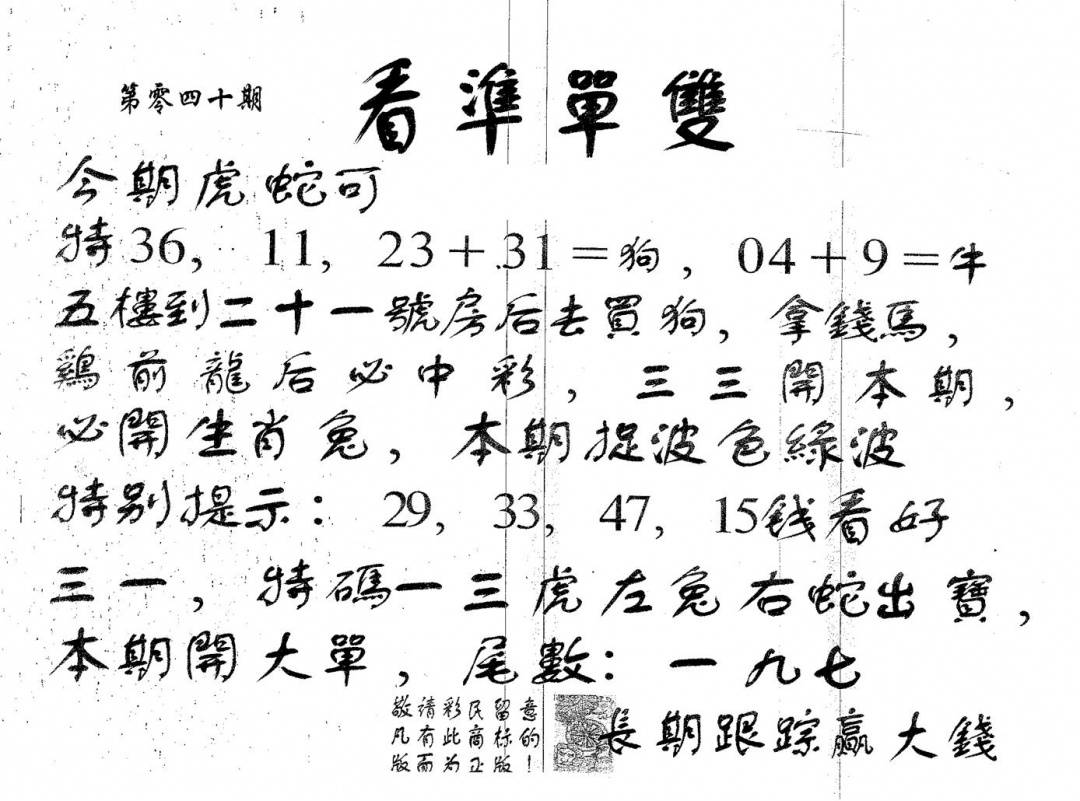 第零四十期
看準單雙
今期虎蛇可
特36, 11, 23+31=狗, 04+9=牛
五樓到二十一號房后去買狗, 拿錢馬,
鷄前龍后必中彩, 三三開本期,
必開生肖兔, 本期捉波色綠波
特别提示: 29, 33, 47, 15钱看好
三一, 特碼一三虎左兔右蛇出寶,
本期開大單, 尾數: 一九七
敬请彩民留意
凡有此商标的!
版面为正版
長期跟踪贏大錢